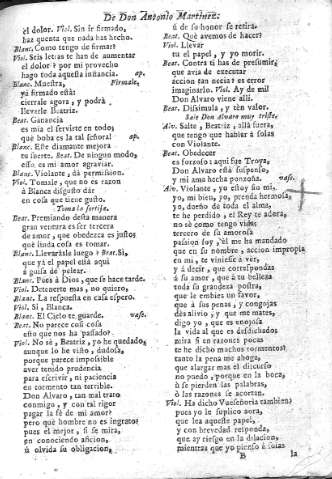 De Don Antonio Martinez.
el dolor. Viol. Sin ser firmado,
haz quenta que nada has hecho.
Blanc. Como tengo de firmar?
Viol. Seis letras te han de aumentar
el dolor? por mi provecho
hago toda aquesta instancia. ap.
Blanc. Muestra, Firmale,
ya firmado està:
cierrale agora, y podrà
llevarle Beatriz.
Beat. Ganancia
es mia el servirte en todo;
què boba es la tal señora! ap.
Blanc. Este diamante mejora
tu suerte. Beat. De ningun modo,
esso es mi amor agraviar.
Blanc. Violante, dà permission.
Viol. Tomale, que no es razon
à Blanca disgusto dàr
en cosa que tiene gusto.
Toma la sortija.
Beat. Premiando desta manera
gran ventura es ser tercera
de amor, que obedezca es justo
què linda cosa es tomar.
Blanc. Llevaràsla luego? Beat. Sì,
que yà el papel està aqui
à guisa de pelear.
Blanc. Pues à Dios, que se hace tarde.
Viol. Detenerte mas, no quiero.
Blanc. La respuesta en casa espero.
Viol. Sì, Blanca.
Blanc. El Cielo te guarde. vase.
Beat. No parece cosi cosa
esto que nos ha passado?
Viol. No sè, Beatriz, yo he quedado,
aunque lo he visto, dudosa,
porque parece impossible
aver tenido prudencia
para escrivir, ni paciencia
en tormento tan terrible.
Don Alvaro, tan mal trato
conmigo, y con tal rigor
pagar la fè de mi amor?
pero què hombre no es ingrato?
pues el mejor, si se mira,
en conociendo aficion,
ù olvida su obligacion,
ù de su honor se retira.
Beat. Què avemos de hacer?
Viol. Llevar
tu el papel, y yo morir.
Beat. Contra ti has de presumir,
que avia de executar
accion tan necia? es error
imaginarlo. Viol. Ay de mi!
Don Alvaro viene alli.
Beat. Dissimula, y tèn valor.
Sale Don Alvaro muy triste.
Alv. Salte, Beatriz, allà fuera,
que tengo que hablar à solas
con Violante.
Beat. Obedecer
es forzoso: aqui fue Troya,
Don Alvaro està suspenso,
y mi ama hecha ponzoña. vase.
Alv. Violante, yo estoy sin mi,
yo, mi bien, yo, prenda hermosa,
yo, dueño de toda el alma,
te he perdido, el Rey te adora,
no sè como tengo vida:
tercero de su amorosa
passion soy, èl me ha mandado
que en su nombre, accion impropia
en mi, te viniesse à vèr,
y à decir, que correspondas
à su amor, que à tu belleza
toda su grandeza postra,
que le embies un favor,
que à sus penas, y congojas
dès alivio, y que me mates,
digo yo, que es enojosa
la vida al que es desdichado:
mira si en razones pocas
te he dicho muchos tormentos:
tanto la pena me ahoga,
que alargar mas el discurso
no puedo, porque en la boca,
ù se pierden las palabras,
ò las razones se acortan.
Viol. Ha dicho Vueseñoria tambien?
pues yo le suplico aora,
que lea aqueste papel,
y con brevedad responda,
que ay riesgo en la dilacion,
mientras que yo pienso à solas
B la